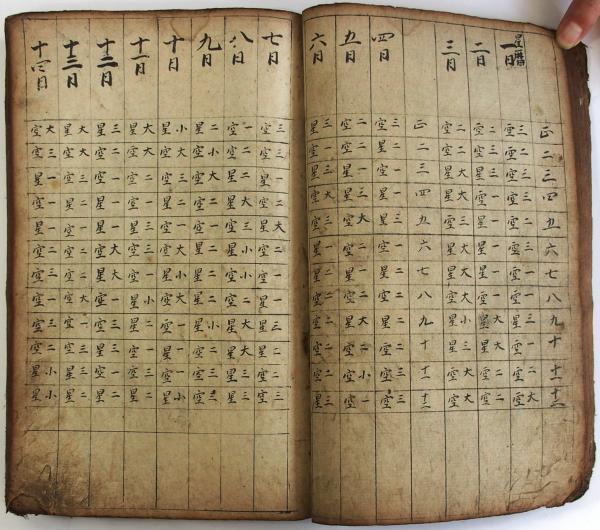 正 二 三 四 五 六 七 八 九 十 十一 十二
星曆
一日 空三 空三 空二 空一 空二 空三 空一 空一 星三 空一 空二 空大
二日 空三 空二 空二 空一 空一 星一 星一 空一 星大 星大 空二 空二
三日 空二 空三 星大 星大 空三 星大 星大 空大 星小 星三 空大 空大
正 二 三 四 五 六 七 八 九 十 十一 十二
四日 空三 空二 星一 星一 星三 空一 星二 星二 空二 空二 空三 空三
五日 空二 空二 星一 星三 空大 星一 星一 空二 星大 空二 空小 空一
六日 星三 空一 星三 空大 空三 星一 星二 空二 空二 空二 空三 星三
七日 空三 空二 星一 空一 星大 空二 空一 星一 星三 空二 空二 空三
八日 空一 星二 星二 星大 空一 星小 星小 空二 星大 星大 星三 星三
九日 星二 空小 空大 空一 空二 星二 星大 星二 星小 空二 空三 空三
十日 星小 空大 空二 空一 星三 空大 星小 空大 星一 星一 空一 星小
十一日 星大 空大 空一 星一 空三 星三 空一 星小 星二 空三 星三 星二
十二日 星三 空二 星一 空一 星一 空大 星大 空一 空三 星三 星三 星一
十三日 星大 空大 空一 空二 空二 星二 空三 空大 空一 空三 星三 星二
十四日 空大 空三 星一 空一 星一 空二 空三 空一 空三 空二 星小 星小